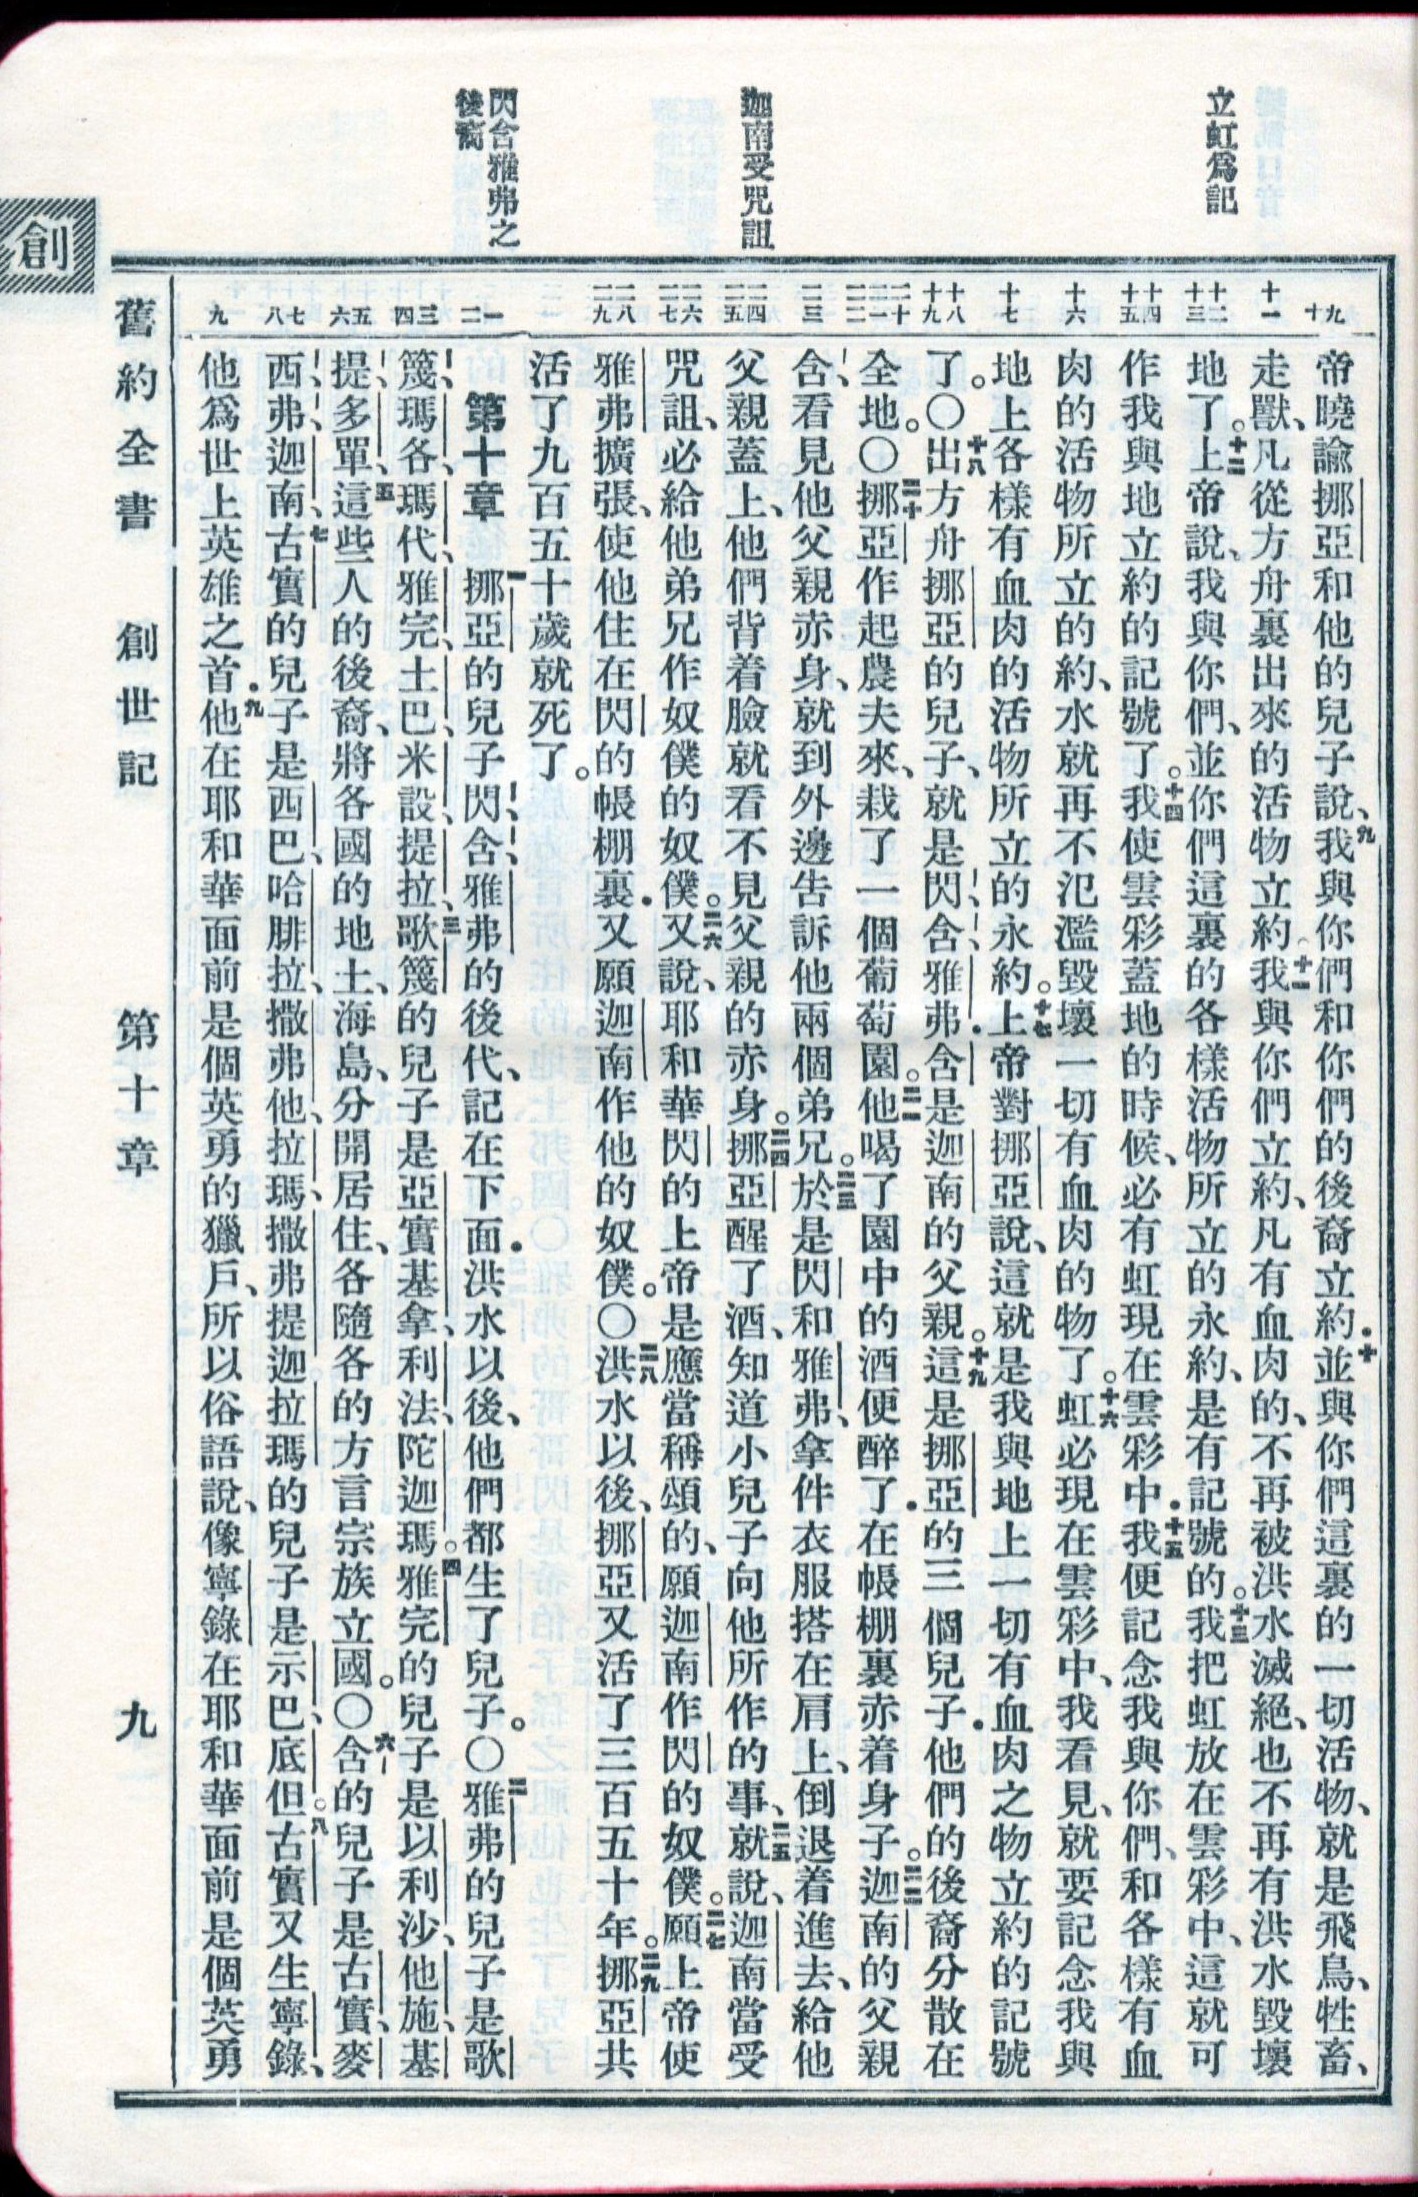 立虹爲記
迦南受咒詛
閃含雅弗之
後裔
九
十
十一
十二
十三
十四
十五
十六
十七
十八
十九
二十
二一
二二
二三
二四
二五
二六
二七
二八
二九
一
二
三
四
五
六
七
八
九
帝曉諭挪亞和他的兒子說、九我與你們和你們的後裔立約．十並與你們這裏的一切活物、就是飛鳥、牲畜、
走獸、凡從方舟裏出來的活物立約。十一我與你們立約、凡有血肉的、不再被洪水滅絕、也不再有洪水毀壞
地了。十二上帝說、我與你們、並你們這裏的各樣活物所立的永約、是有記號的。十三我把虹放在雲彩中、這就可
作我與地立約的記號了。十四我使雲彩蓋地的時候、必有虹現在雲彩中．十五我便記念我與你們、和各樣有血
肉的活物所立的約、水就再不氾濫毀壞一切有血肉的物了。十六虹必現在雲彩中、我看見、就要記念我與
地上各樣有血肉的活物所立的永約。十七上帝對挪亞說、這就是我與地上一切有血肉之物立約的記號
了。〇十八出方舟挪亞的兒子、就是閃、含、雅弗．含是迦南的父親。十九這是挪亞的三個兒子．他們的後裔分散在
全地。〇二十挪亞作起農夫來、栽了一個葡萄園。二一他喝了園中的酒便醉了．在帳棚裏赤着身子。二二迦南的父親
含、看見他父親赤身、就到外邊告訴他兩個弟兄。二三於是閃和雅弗、拿件衣服搭在肩上、倒退着進去、給他
父親蓋上、他們背着臉就看不見父親的赤身。二四挪亞醒了酒、知道小兒子向他所作的事、二五就說、迦南當受
咒詛、必給他弟兄作奴僕的奴僕。二六又說、耶和華閃的上帝是應當稱頌的、願迦南作閃的奴僕。二七願上帝使
雅弗擴張、使他住在閃的帳棚裏．又願迦南作他的奴僕。〇二八洪水以後、挪亞又活了三百五十年。二九挪亞共
活了九百五十歲就死了。
第十章 一挪亞的兒子閃、含、雅弗的後代、記在下面．洪水以後、他們都生了兒子。〇二雅弗的兒子是歌
篾、瑪各、瑪代、雅完、土巴、米設、提拉、三歌篾的兒子是亞實基拿、利法、陀迦瑪。四雅完的兒子是以利沙、他施、基
提、多單、五這些人的後裔、將各國的地土、海島、分開居住、各隨各的方言宗族立國。〇六含的兒子是古實、麥
西、弗、迦南、七古實的兒子是西巴、哈腓拉、撒弗他、拉瑪、撒弗提迦。拉瑪的兒子是示巴、底但。八古實又生寧錄、
他爲世上英雄之首．九他在耶和華面前是個英勇的獵戶、所以俗語說、像寧錄在耶和華面前是個英勇
創
舊約全書 創世記 第十章 九